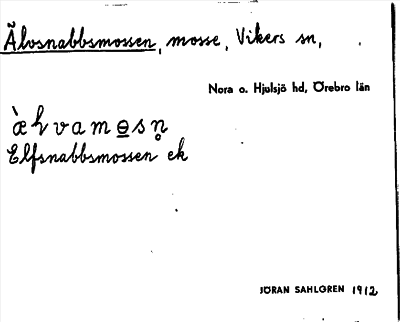 Älvsnabbsmossen, mosse, Vikers sn,
Nora o. Hjulsjö hd, Örebro län
Elfsnabbsmossen ek
JÖRAN SAHLGREN 1912